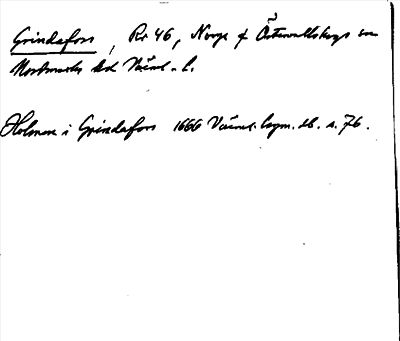 Grindafors, Rr 46, Norge f Östervallskogs sn
Nordmarks hd Värml. l.
Holmen i Grindafors 1666 Värml. lagm. db. s. 76.